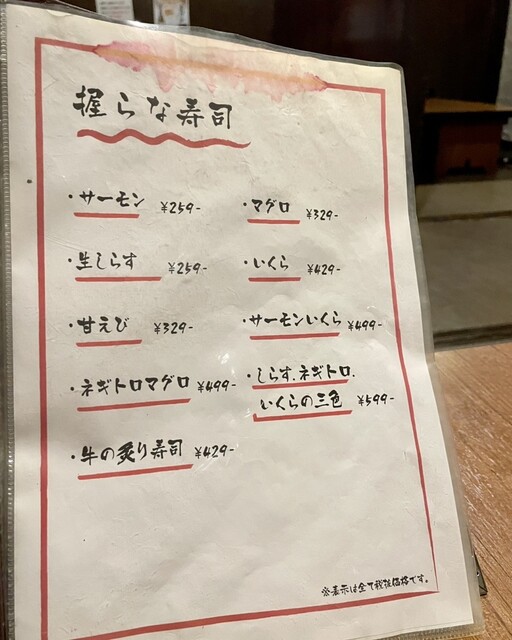 握らな寿司
・サーモン ¥259-
・マグロ ¥329-
・生しらす ¥259-
・いくら ¥429-
・甘えび ¥329-
・サーモンいくら ¥499-
・ネギトロマグロ ¥499-
・しらす、ネギトロ、
いくらの三色 ¥599-
・牛の炙り寿司 ¥429-
※表示は全て税抜価格です。